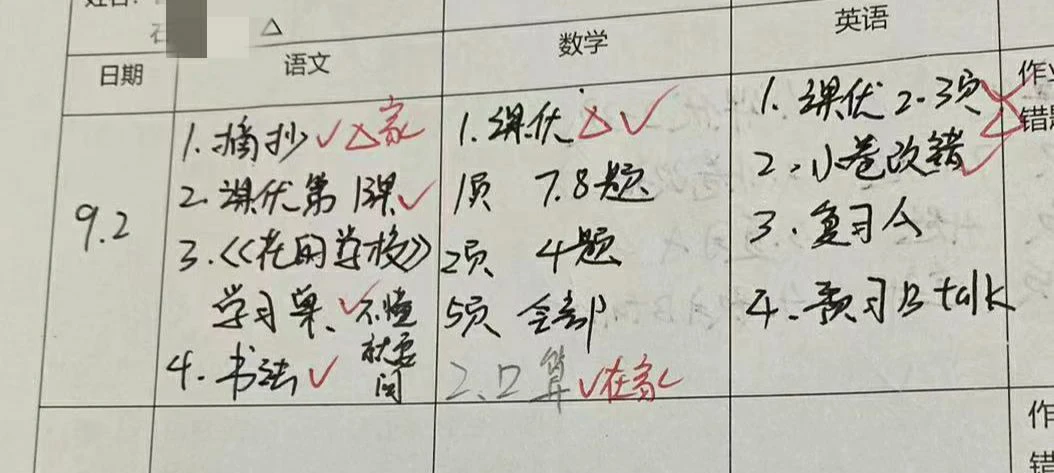 姓名:
石 △
日期 语文 数学 英语
作业
错题
9.2
1.摘抄✓△家
2.课优第1课✓
3.《花的学校》
学习单、✓不懂
就要
问
4.书法✓
1.课优△✓
1页 7.8题
2页 4题
5页 全部
2、口算✓在家✓
1.课优2.3页
2.小卷改错✓
3.复习A
4.预习B talk
作
错